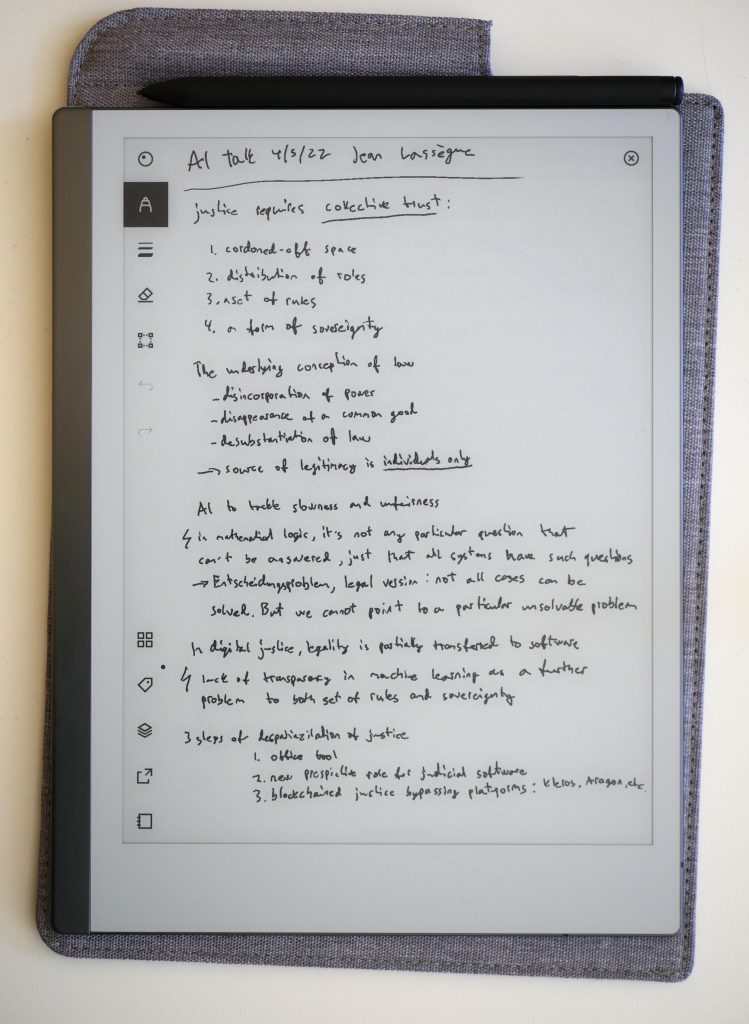 AI talk 4/5/22 Jean Lassègue
justice requires collective trust:
1. cordoned-off space
2. distribution of roles
3. a set of rules
4. a form of sovereignty
The underlying conception of law
- disincorporation of power
- disappearance of a common good
- desubstantiation of law
→ source of legitimacy is individuals only
AI to tackle slowness and unfairness
↯ in mathematical logic, it's not any particular question that
can't be answered, just that all systems have such questions
→ Entscheidungsproblem, legal version: not all cases can be
solved. But we cannot point to a particular unsolvable problem
In digital justice, legality is partially transferred to software
↯ lack of transparency in machine learning as a further
problem to both set of rules and sovereignty
3 steps of of justice
1. office tool
2. new role for judicial software
3. blockchained justice bypassing platforms: Kleros, Aragon, etc.